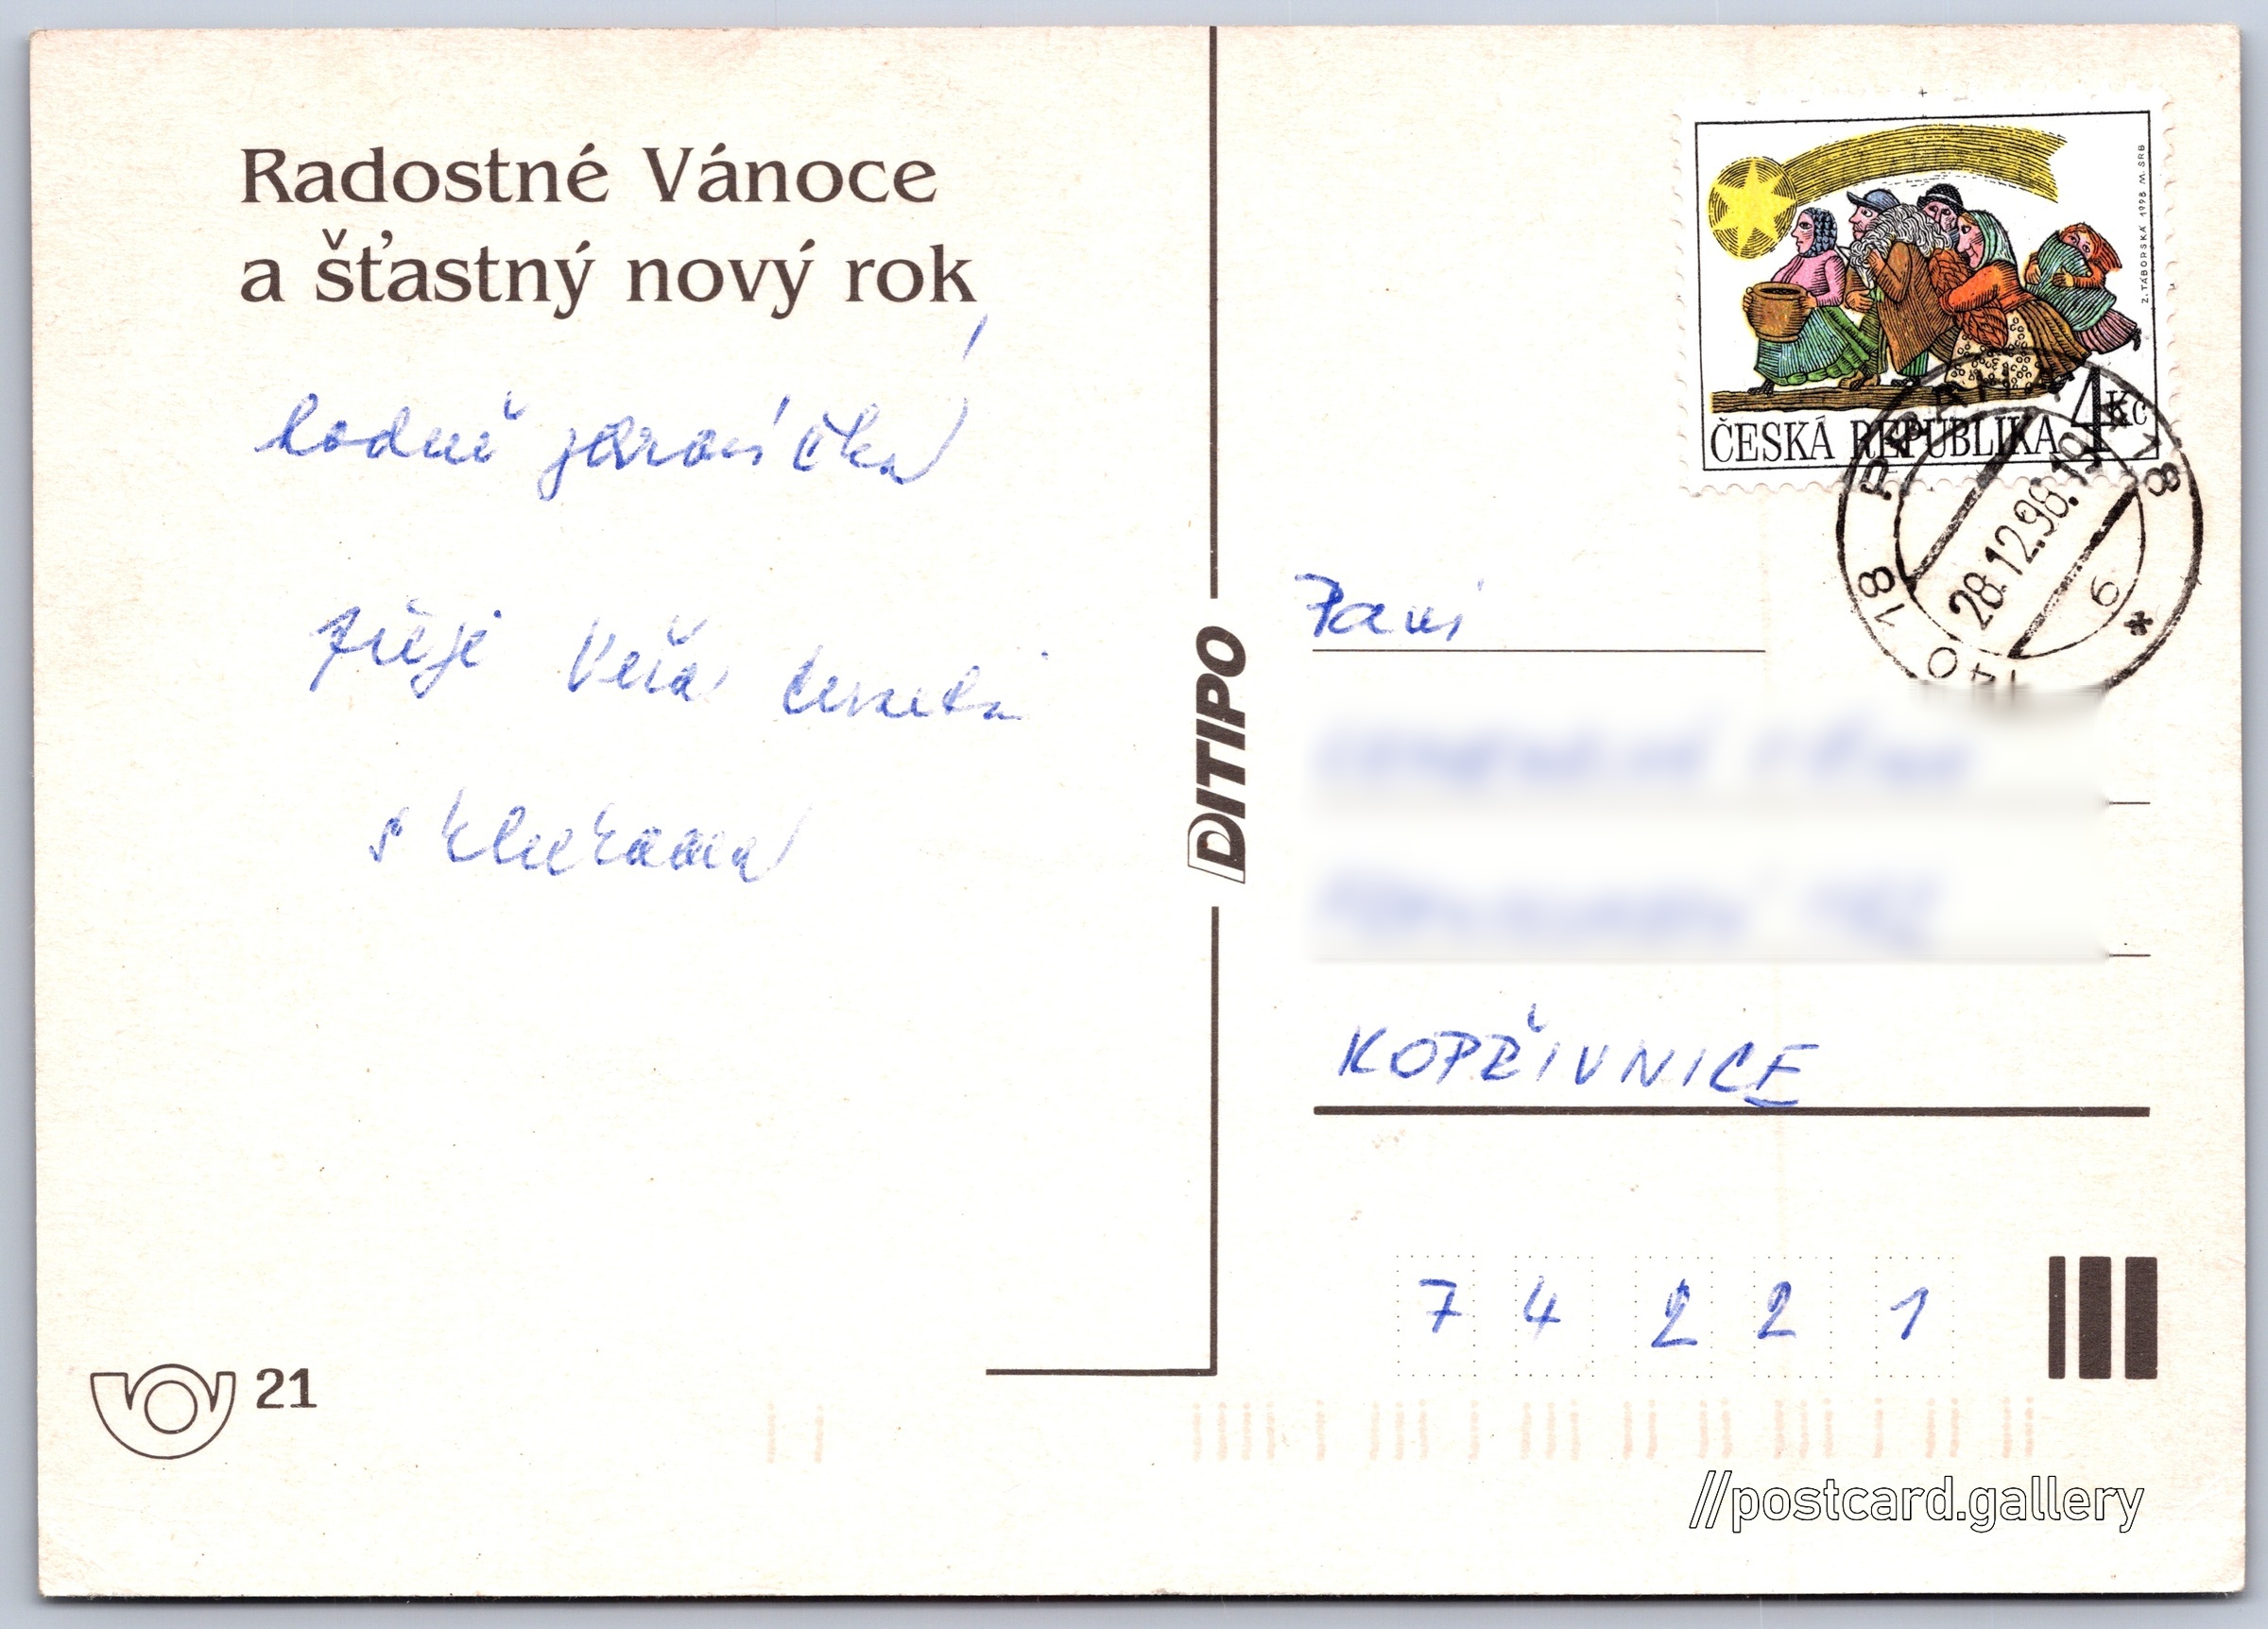 Radostné Vánoce
a šťastný nový rok
hodně zdravíčka
přeje Věra
s klukama
DITIPO
21
Z. TÁBORSKÁ 1998 M. SRB
4 Kč
ČESKÁ REPUBLIKA
28.12.98.19
6
Paní
KOPŘIVNICE
7 4 2 2 1
//postcard.gallery